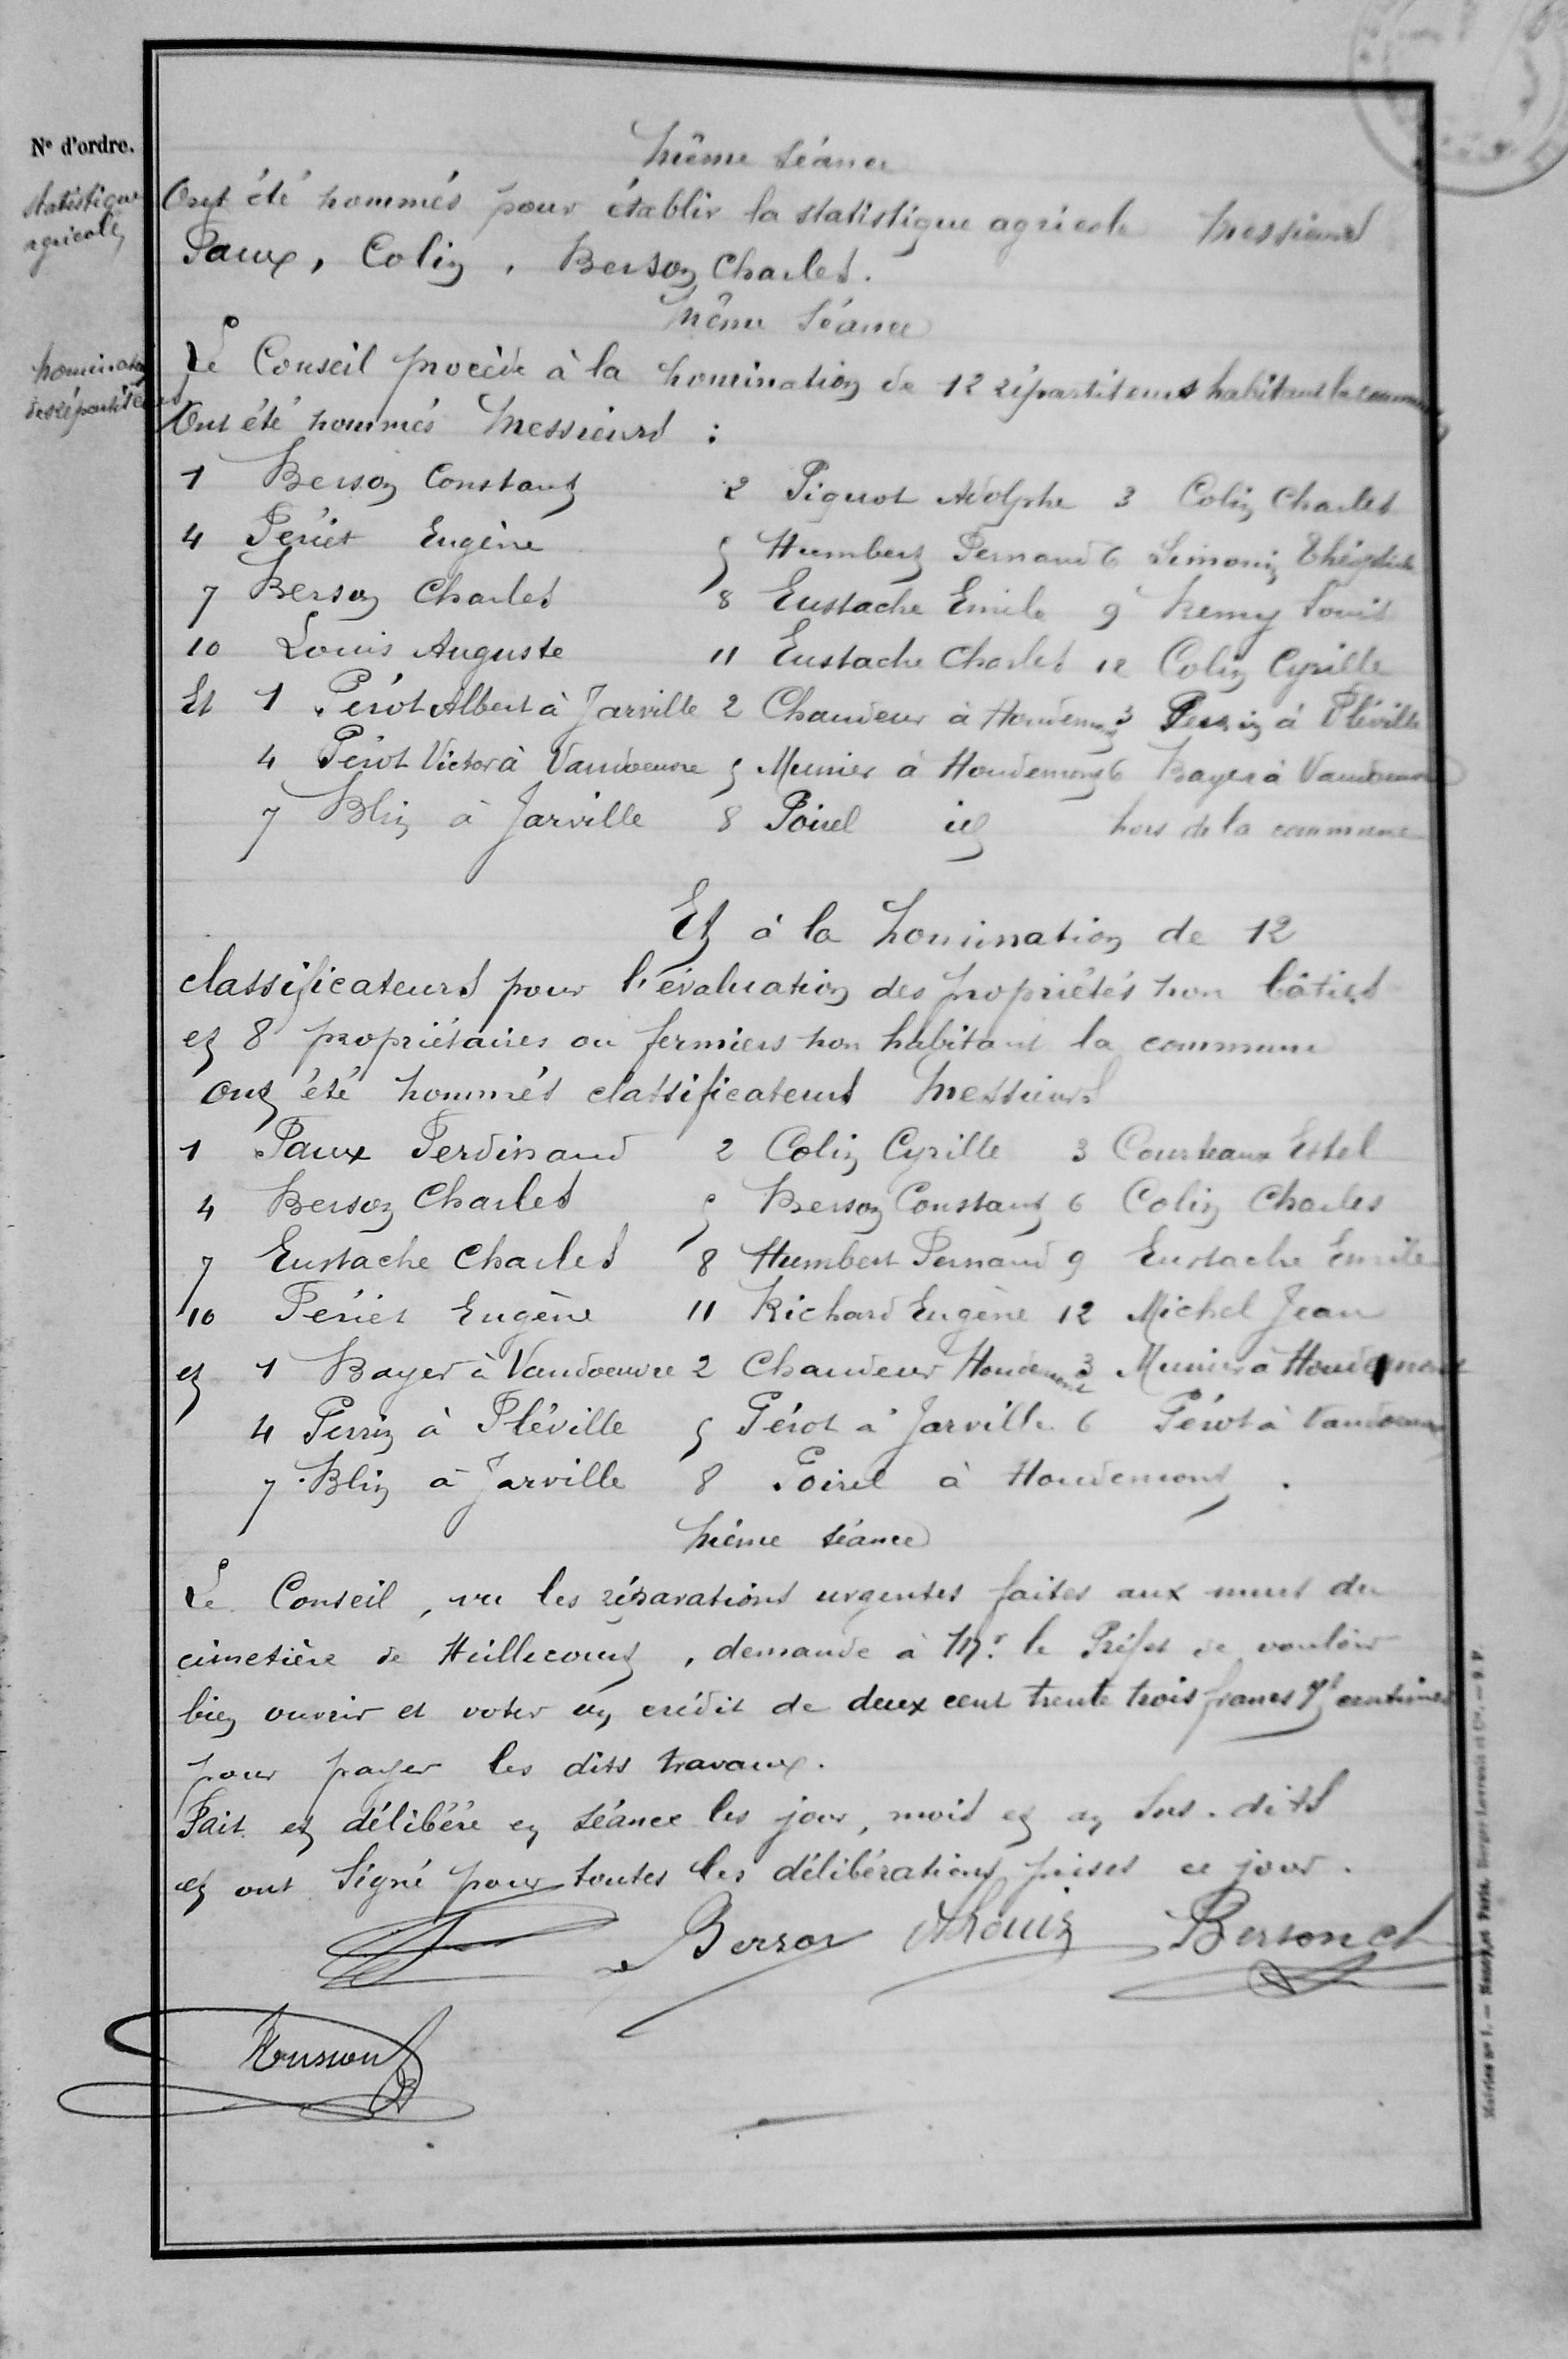 N° d'ordre.
statistique
agricole
Même séance
Ont été nommés pour établir la statistique agricole Messieurs
Paux, Colin, Berson Charles.
Même séance
nomination
des répartiteurs
Le Conseil procède à la nomination de 12 répartiteurs habitant la commune
Ont été nommés Messieurs :
1 Berson Constant 2 Piquot Adolphe 3 Colin Charles
4 Périet Eugène 5 Humbert Fernand 6 Simonin
7 Berson Charles 8 Eustache Emile 9 Remy Louis
10 Louis Auguste 11 Eustache Charles 12 Colin Cyrille
Et 1 Pérot Albert à Jarville 2 Chaudeur à Houdemont 3 Perrin à Fléville
4 Pérot Victor à Vandoeuvre 5 Munier à Houdemont 6 Bayer à Vandoeuvre
7 Blin à Jarville 8 Poirel id hors de la commune
Et à la nomination de 12
classificateurs pour l'évaluation des propriétés non bâties
et 8 propriétaires ou fermiers non habitant la commune
ont été nommés classificateurs Messieurs
1 Paux Ferdinand 2 Colin Cyrille 3 Courteaux Estel
4 Berson Charles 5 Berson Constant 6 Colin Charles
7 Eustache Charles 8 Humbert Fernand 9 Eustache Emile
10 Périet Eugène 11 Richard Eugène 12 Michel Jean
et 1 Bayer à Vandoeuvre 2 Chaudeur Houdemont 3 Munier à Houdemont
4 Perrin à Fléville 5 Pérot à Jarville 6 Pérot à Vandoeuvre
7 Blin à Jarville 8 Poirel à Houdemont.
Même séance
Le Conseil, vu les réparations urgentes faites aux murs du
cimetière de Heillecourt, demande à Mr. le Préfet de vouloir
bien ouvrir et voter un crédit de deux cent trente trois francs centimes
pour payer les dits travaux.
Fait et délibéré en séance les jour, mois et an sus-dits
et ont signé pour toutes les délibérations prises ce jour.
Berson ALouis Berson ch